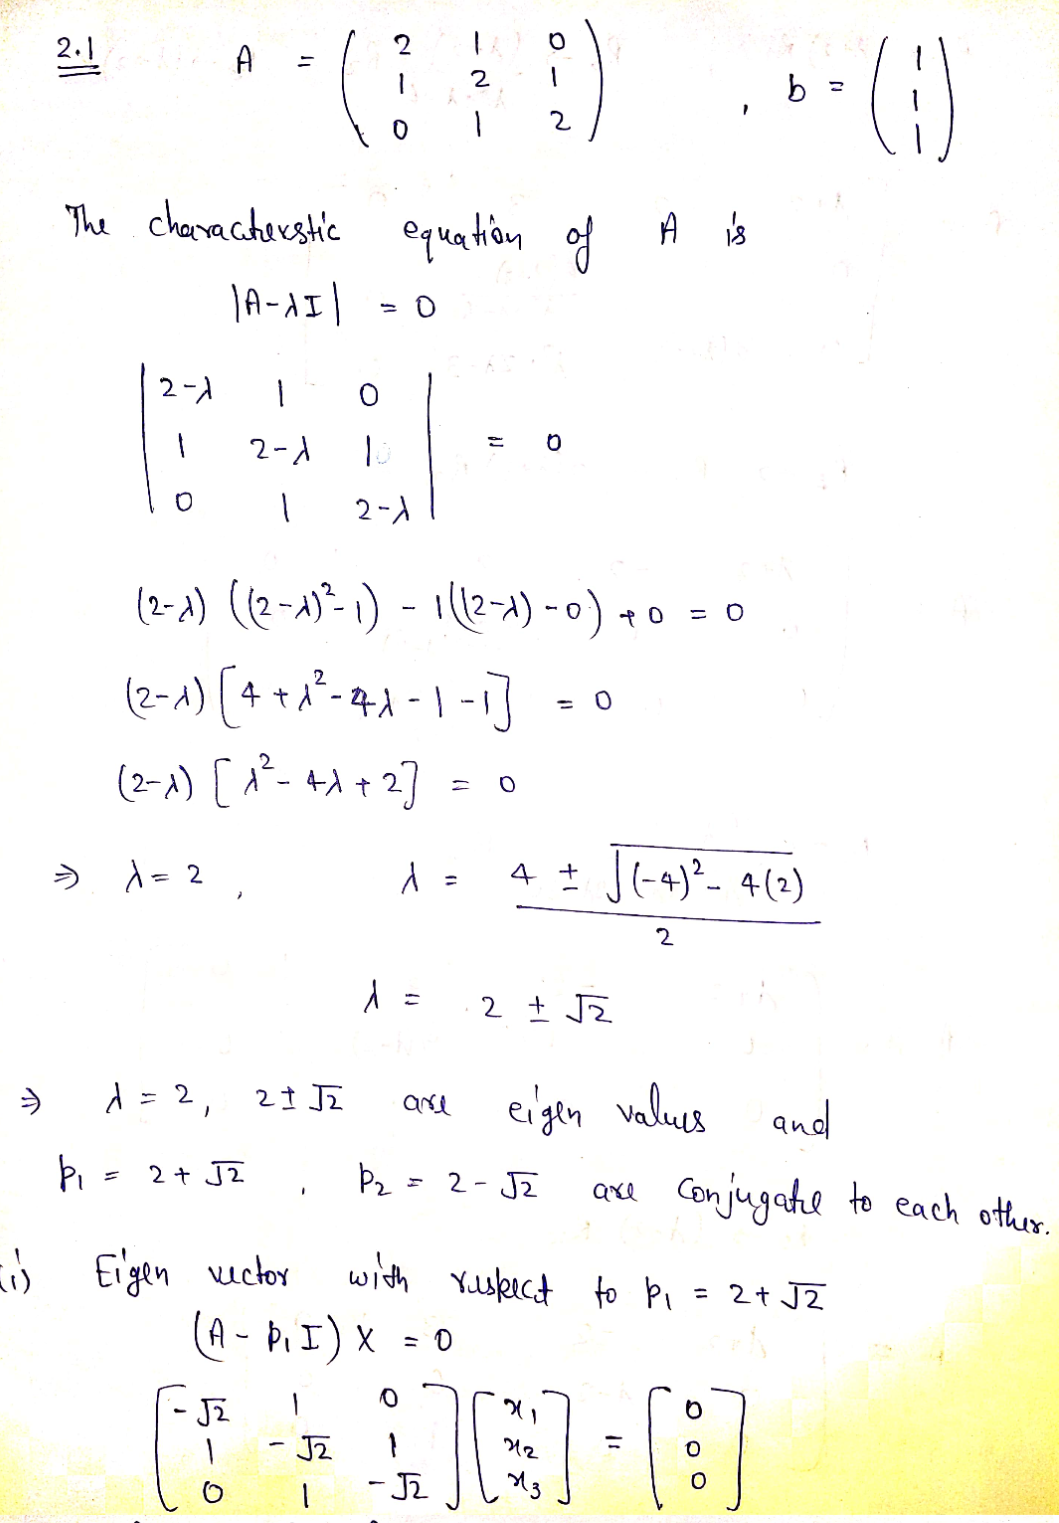 2.1 A = ( 2 1 0 , b = ( 1
1 2 1 1
0 1 2 ) 1 )
The characterstic equation of A is
|A-λI| = 0
| 2-λ 1 0 |
| 1 2-λ 1 | = 0
| 0 1 2-λ |
(2-λ) ((2-λ)²-1) - 1((2-λ)-0) + 0 = 0
(2-λ) [4 + λ² - 4λ - 1 - 1] = 0
(2-λ) [λ² - 4λ + 2] = 0
⇒ λ = 2 , λ = 4 ± √(-4)² - 4(2)
2
λ = 2 ± √2
⇒ λ = 2, 2 ± √2 are eigen values and
p₁ = 2 + √2 , p₂ = 2 - √2 are conjugate to each other.
(i) Eigen vector with respect to p₁ = 2 + √2
(A - p₁I) X = 0
[ -√2 1 0 ] [ x₁ ] [ 0 ]
[ 1 -√2 1 ] [ x₂ ] = [ 0 ]
[ 0 1 -√2 ] [ x₃ ] [ 0 ]